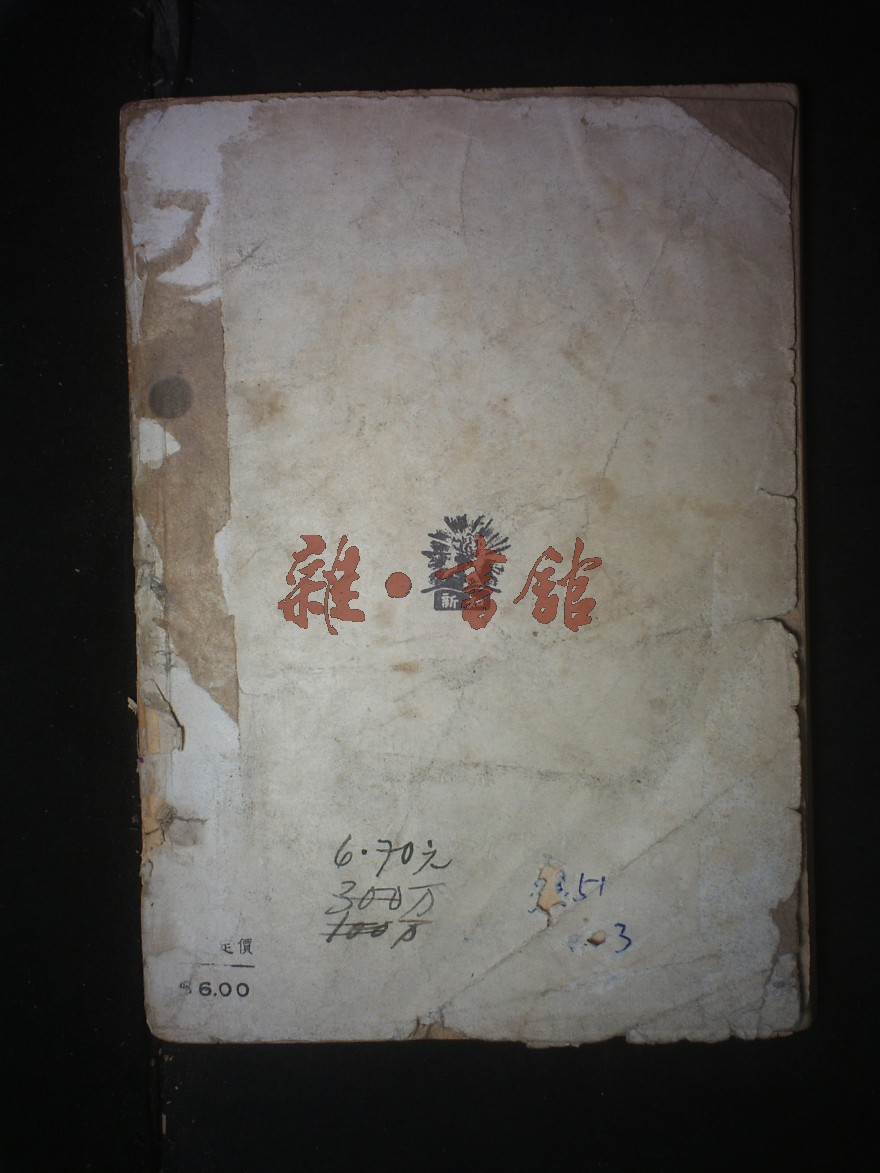 雜·書館
新
6.70元
300万
100万
定價
$6.00
.51
3